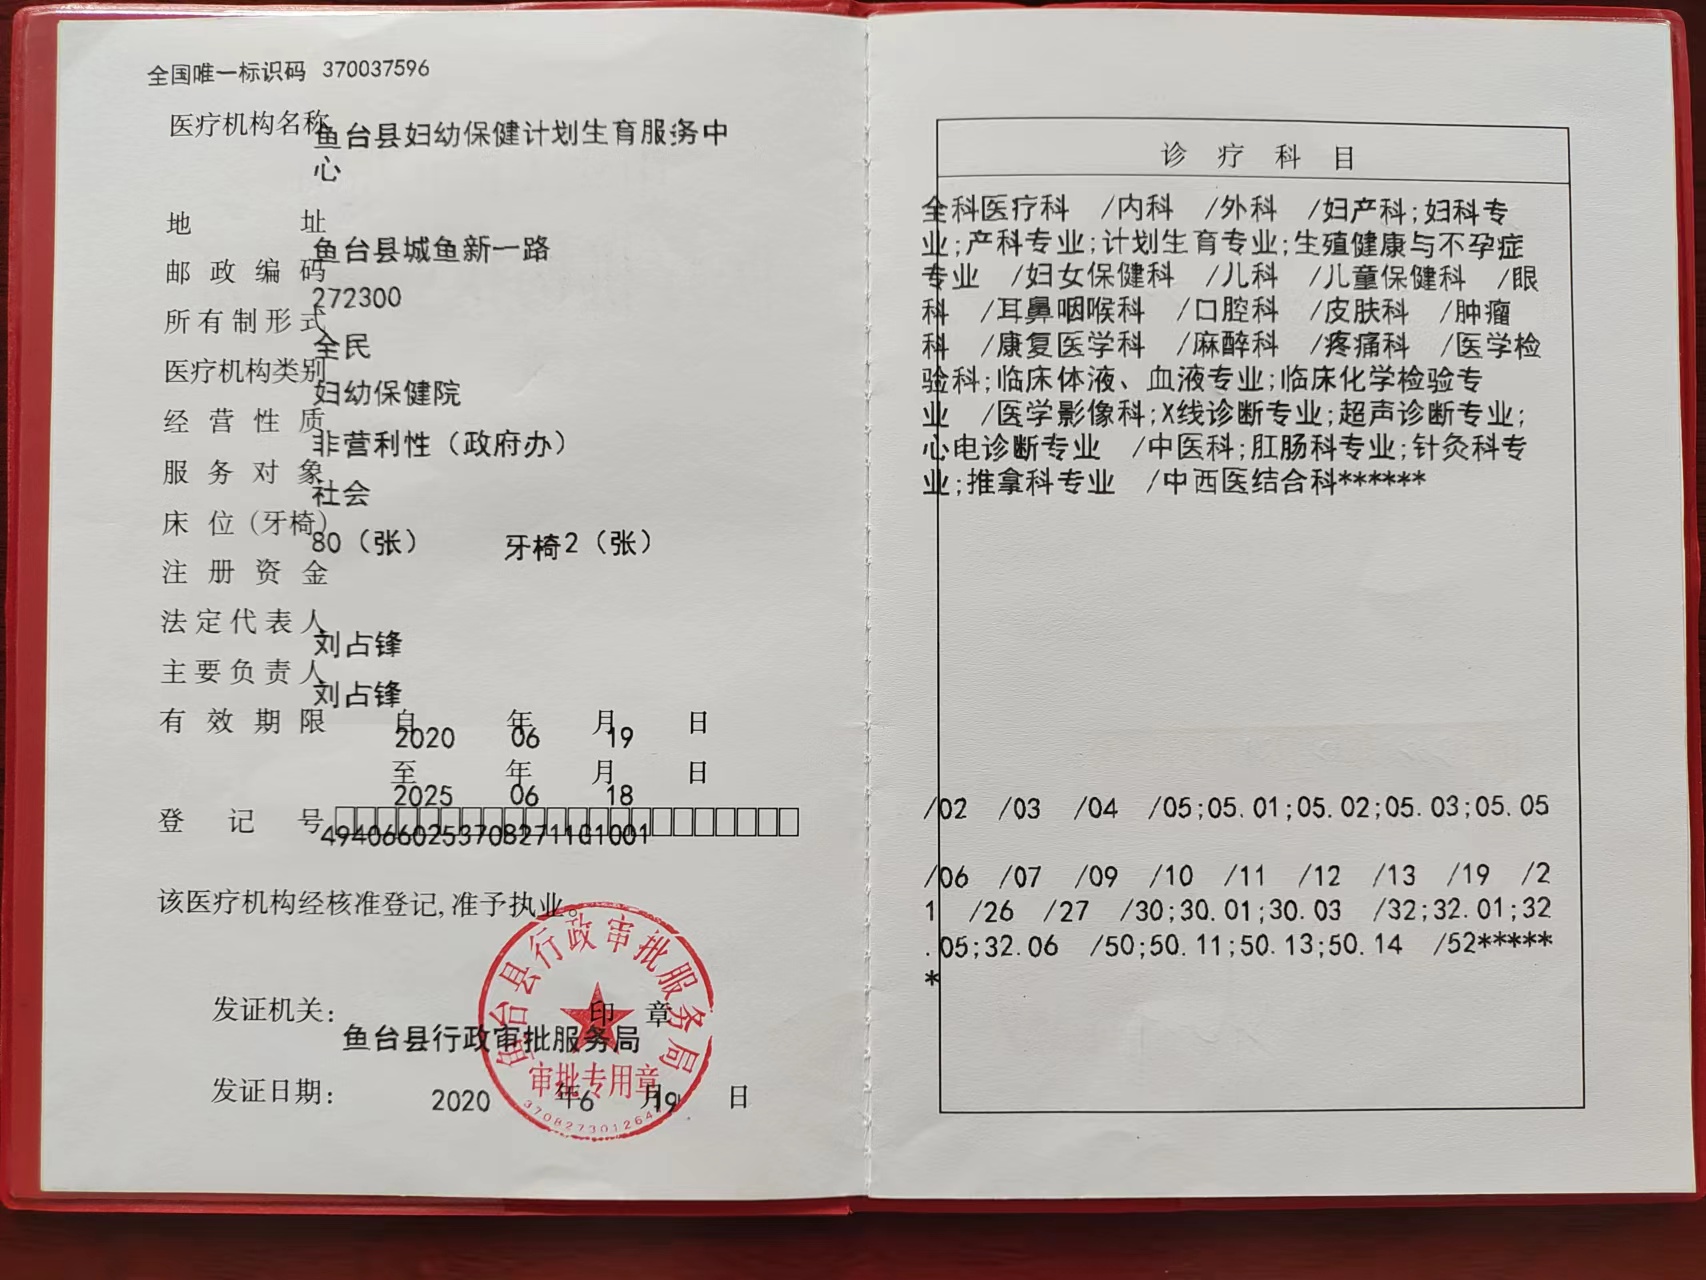 全国唯一标识码 370037596
医疗机构名称 鱼台县妇幼保健计划生育服务中
心
地 址 鱼台县城鱼新一路
邮政编码 272300
所有制形式 全民
医疗机构类别 妇幼保健院
经营性质 非营利性（政府办）
服务对象 社会
床位(牙椅) 80（张） 牙椅2（张）
注册资金
法定代表人 刘占锋
主要负责人 刘占锋
有效期限 自 2020 年 06 月 19 日
至 2025 年 06 月 18 日
登记号 49406602537082711G1001
该医疗机构经核准登记,准予执业。
发证机关: 印 章
鱼台县行政审批服务局
发证日期: 2020 年 6 月 19 日
鱼台县行政审批服务局
审批专用章
诊疗科目
全科医疗科 /内科 /外科 /妇产科;妇科专
业;产科专业;计划生育专业;生殖健康与不孕症
专业 /妇女保健科 /儿科 /儿童保健科 /眼
科 /耳鼻咽喉科 /口腔科 /皮肤科 /肿瘤
科 /康复医学科 /麻醉科 /疼痛科 /医学检
验科;临床体液、血液专业;临床化学检验专
业 /医学影像科;X线诊断专业;超声诊断专业;
心电诊断专业 /中医科;肛肠科专业;针灸科专
业;推拿科专业 /中西医结合科******
/02 /03 /04 /05;05.01;05.02;05.03;05.05
/06 /07 /09 /10 /11 /12 /13 /19 /2
1 /26 /27 /30;30.01;30.03 /32;32.01;32
.05;32.06 /50;50.11;50.13;50.14 /52*****
*